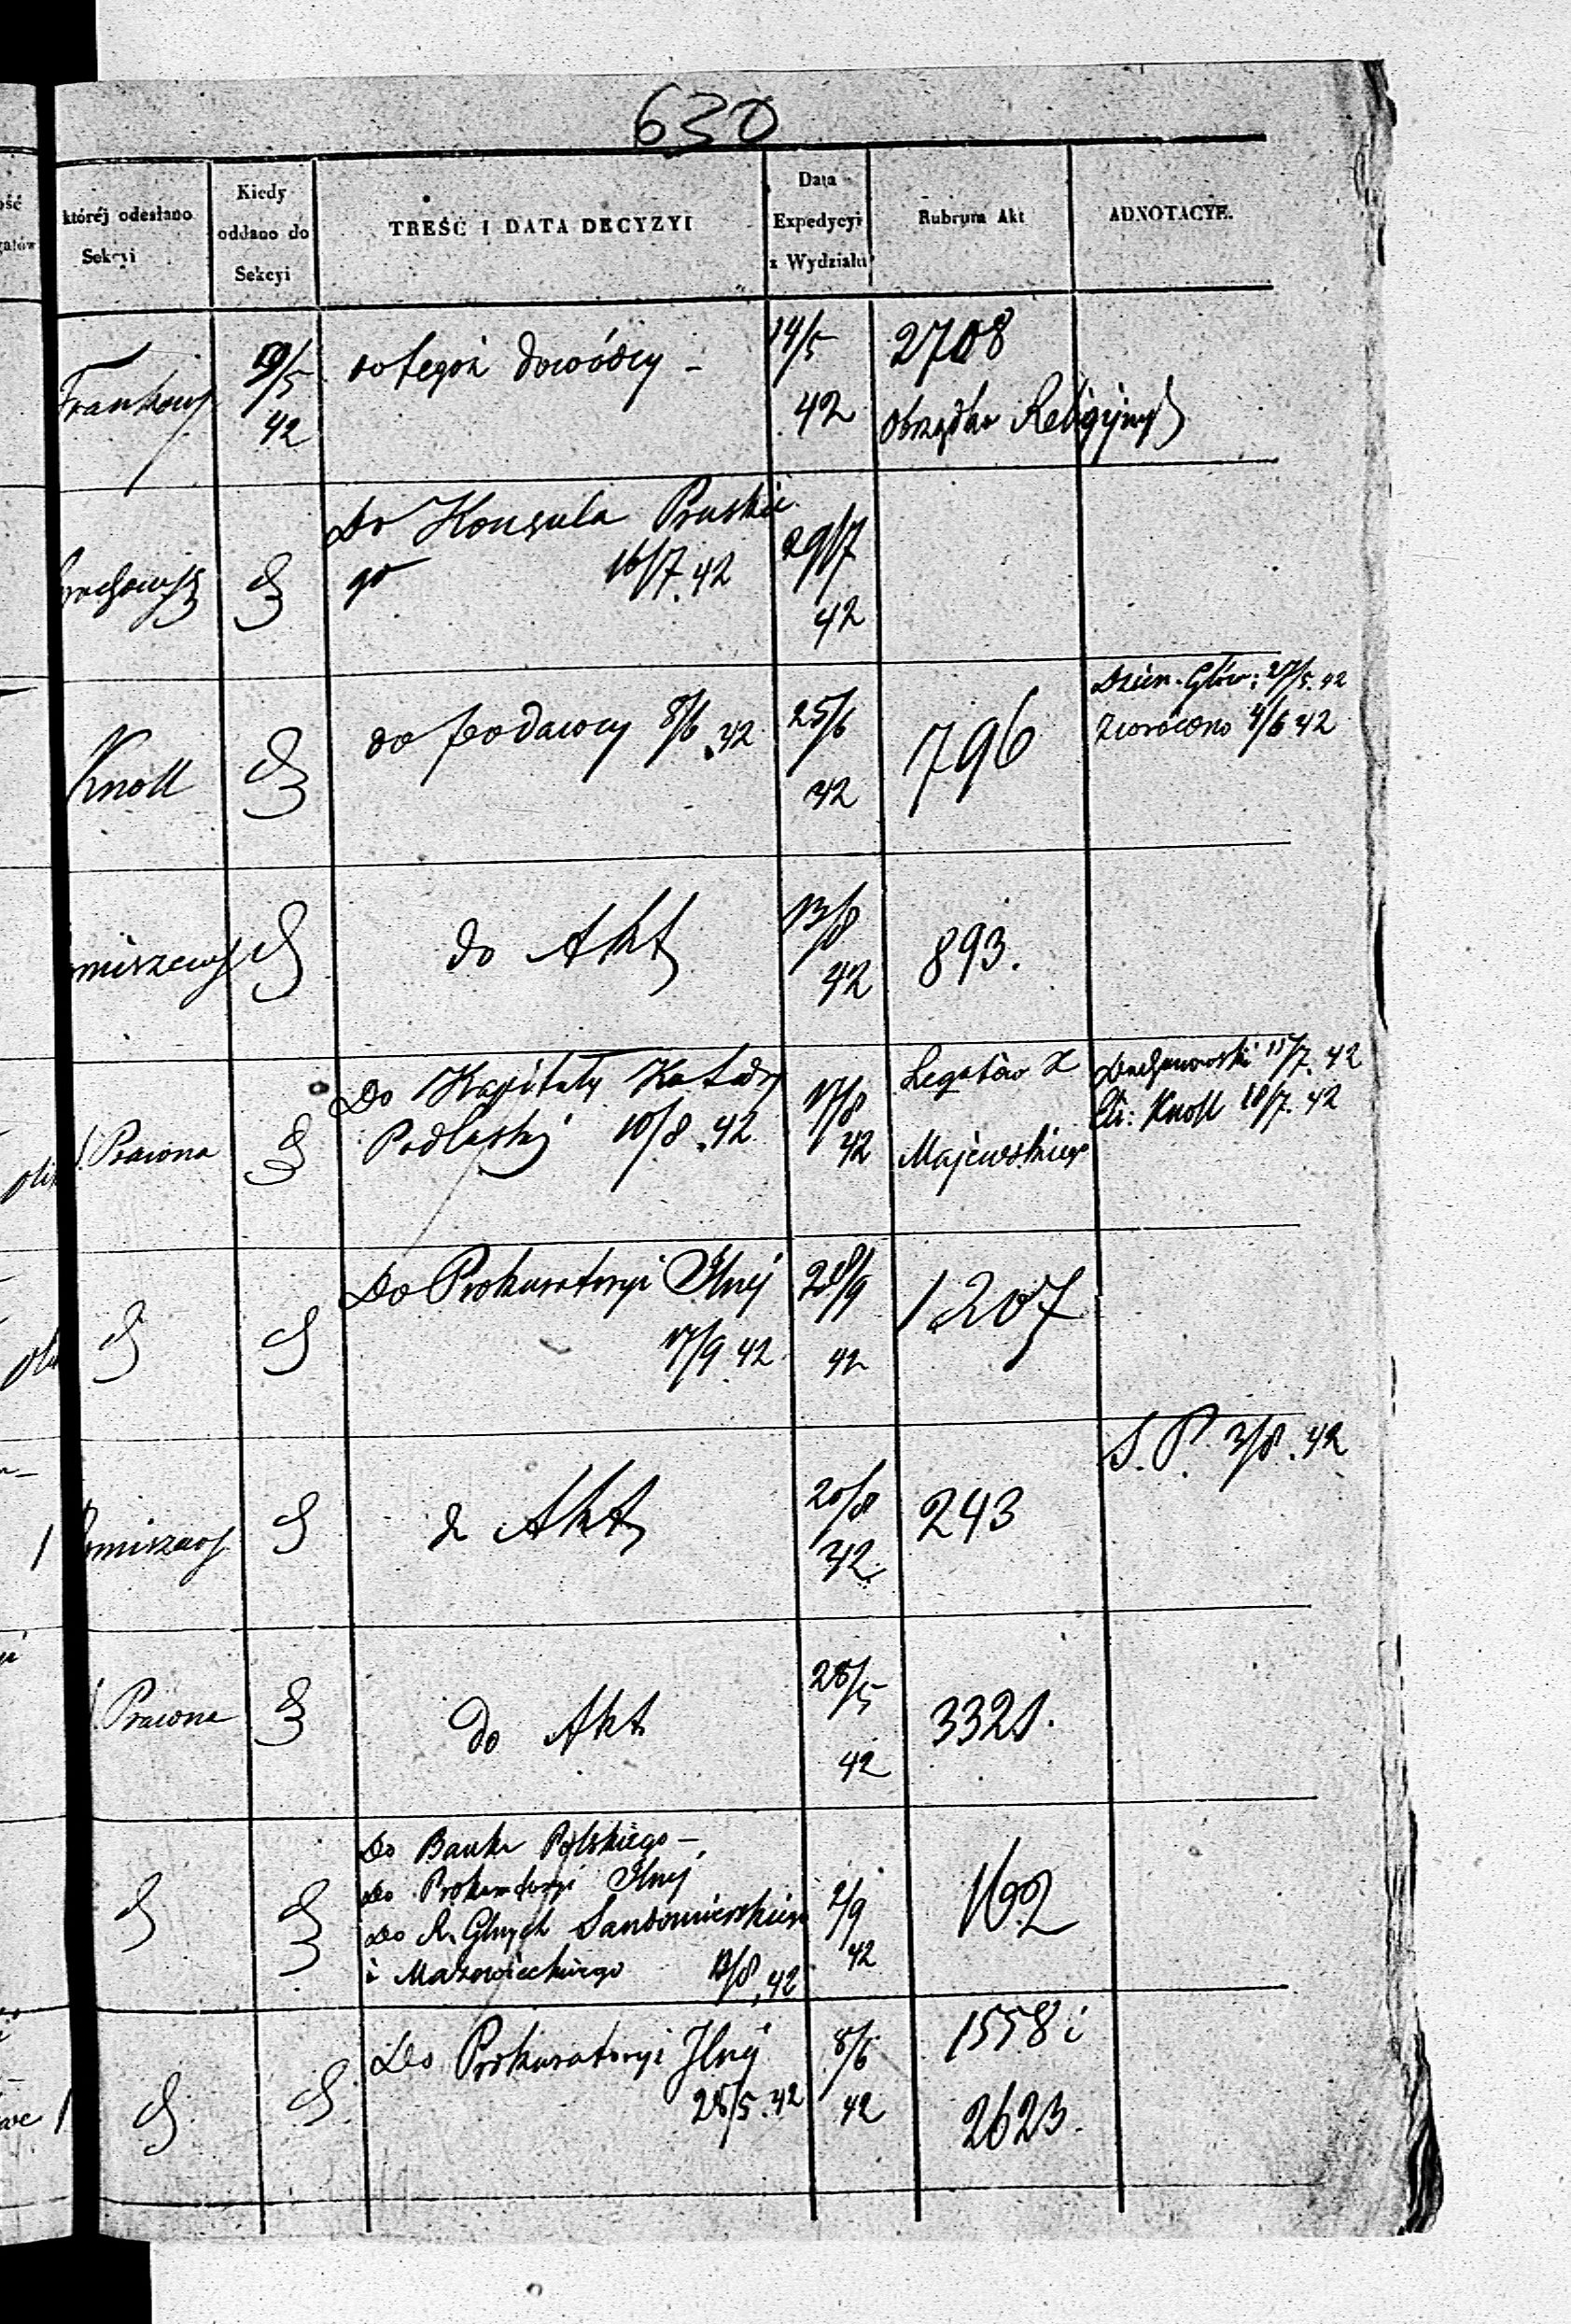 630
któréj odesłano
Sekcyi
Kiedy
oddano do
Sekcyi
TREŚĆ I DATA DECYZYI
Data
Expedycyi
z Wydziału
Rubrum Akt
ADNOTACYE.
19/5
42
do tegoż dowódcy -
14/5
42
2708
Obrządku Religijnych
Do Konsula Pruskie
go 16/7.42
29/7
42
Knoll
do podawcy 8/6.42
25/6
42
796
Dzien. Głów: 27/5.42
zwrócono 4/6 42
do Akt
13/8
42
893.
Prawna
Do Kapituły Katedr
Podlaskiej 10/8.42
17/8
42
Legatów X
Majewskiego
15/7.42
Knoll 18/7.42
Do Prokuratoryi Jlnej
17/9 42
28/9
42
1207
do Akt
20/8
42
243
S. P. 3/8.42
Prawna
do Akt
28/5
42
3321.
Do Banku Polskiego -
Do Prokuratoryi Jlnej
Do R. Glnych Sandomierskiego
i Mazowieckiego 12/8,42
2/9
42
162
Do Prokuratoryi Jlnej
28/5.42
8/6
42
1558 i
2623.